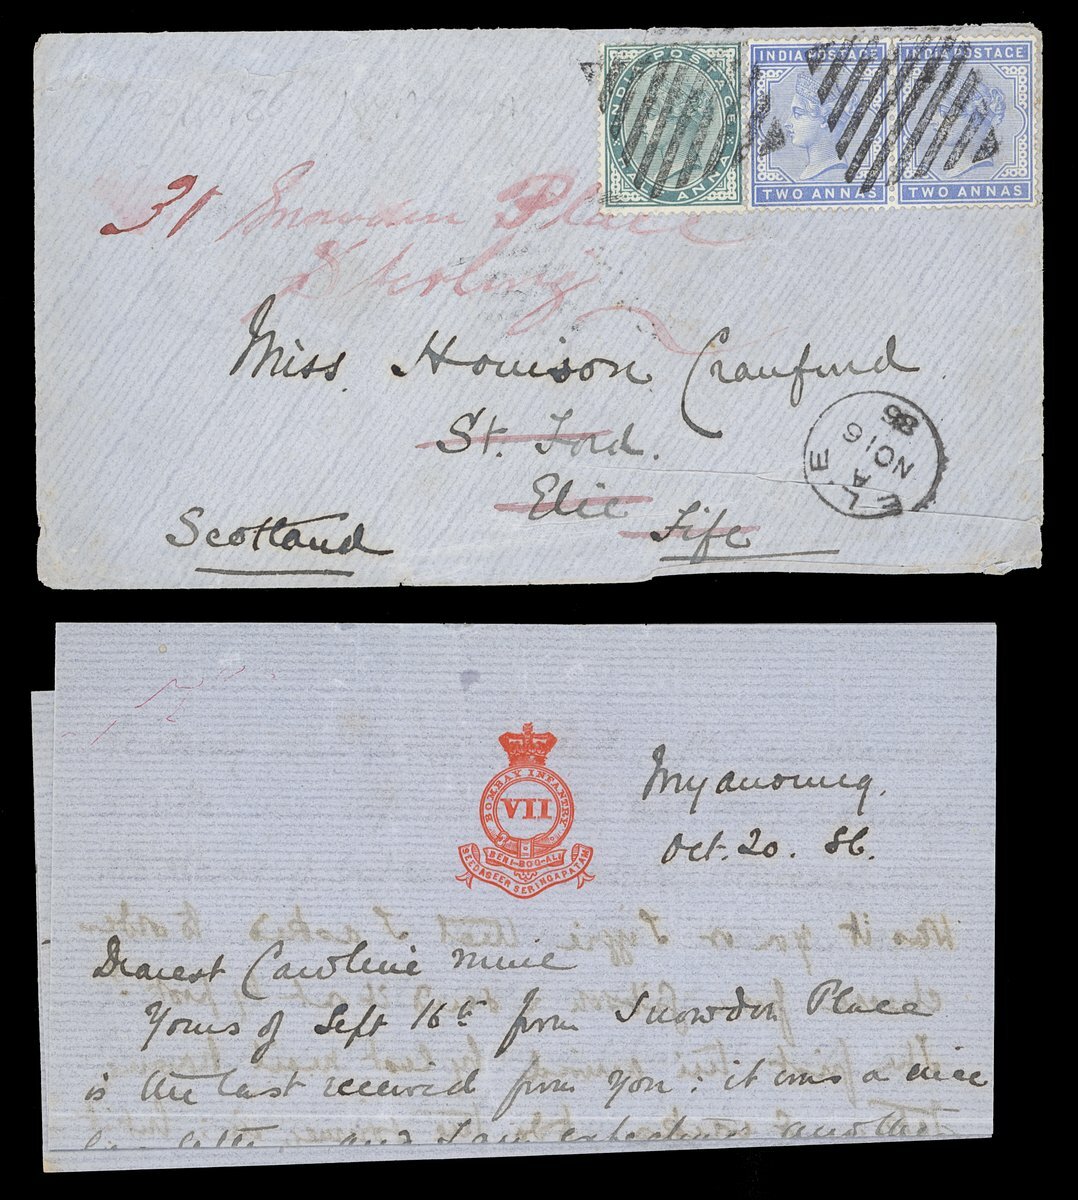 INDIA POSTAGE
INDIA POSTAGE
INDIA POSTAGE
ANNA
TWO ANNAS
TWO ANNAS
31 Snowdon Place
Sterling
Miss Houison Craufurd
St. Ford.
Elie
Fife
Scotland
ELIE
A
NO 16
86
BOMBAY INFANTRY
VII
BENI-BOO-ALI
SEEDASEER SERINGAPATAM
Myanoung.
Oct. 20. 86.
Dearest Caroline mine
Yours of Sept 16th from Snowdon Place
is the last received from you: it was a nice
letter, and I am expecting another